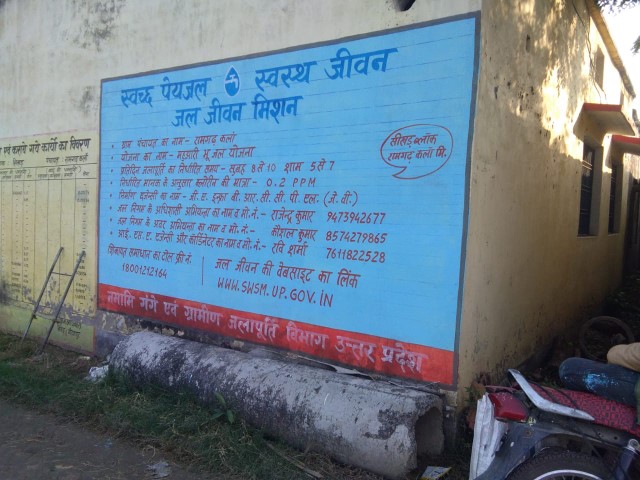 स्वच्छ पेयजल स्वस्थ जीवन
जल जीवन मिशन
सीखड़ ब्लॉक
रामगढ़ कलाँ मि.
• ग्राम पंचायत का नाम - रामगढ़ कलाँ
• योजना का नाम - मझवारी भू जल योजना
• प्रतिदिन जलापूर्ति का निर्धारित समय - सुबह 8 से 10 शाम 5 से 7
• निर्धारित मानक के अनुसार क्लोरिन की मात्रा - 0.2 PPM
• निर्माण एजेन्सी का नाम - जी. ए. इन्फ्रा बी. आर. सी. सी. पी. एल. (जे. वी.)
• जल निगम के अधिशासी अभियन्ता का नाम व मो. नं. - राजेन्द्र कुमार 9473942677
• जल निगम के अवर अभियन्ता का नाम व मो. नं. - कौशल कुमार 8574279865
• आई. एस. ए. एजेन्सी और कोर्डिनेटर का नाम व मो. नं. - रवि शर्मा 7611822528
शिकायत समाधान का टोल फ्री नं.
18001212164
जल जीवन की वेबसाइट का लिंक
WWW.SWSM.UP.GOV.IN
नमामि गंगे एवं ग्रामीण जलापूर्ति विभाग उत्तर प्रदेश
एवं कराये गये कार्यों का विवरण